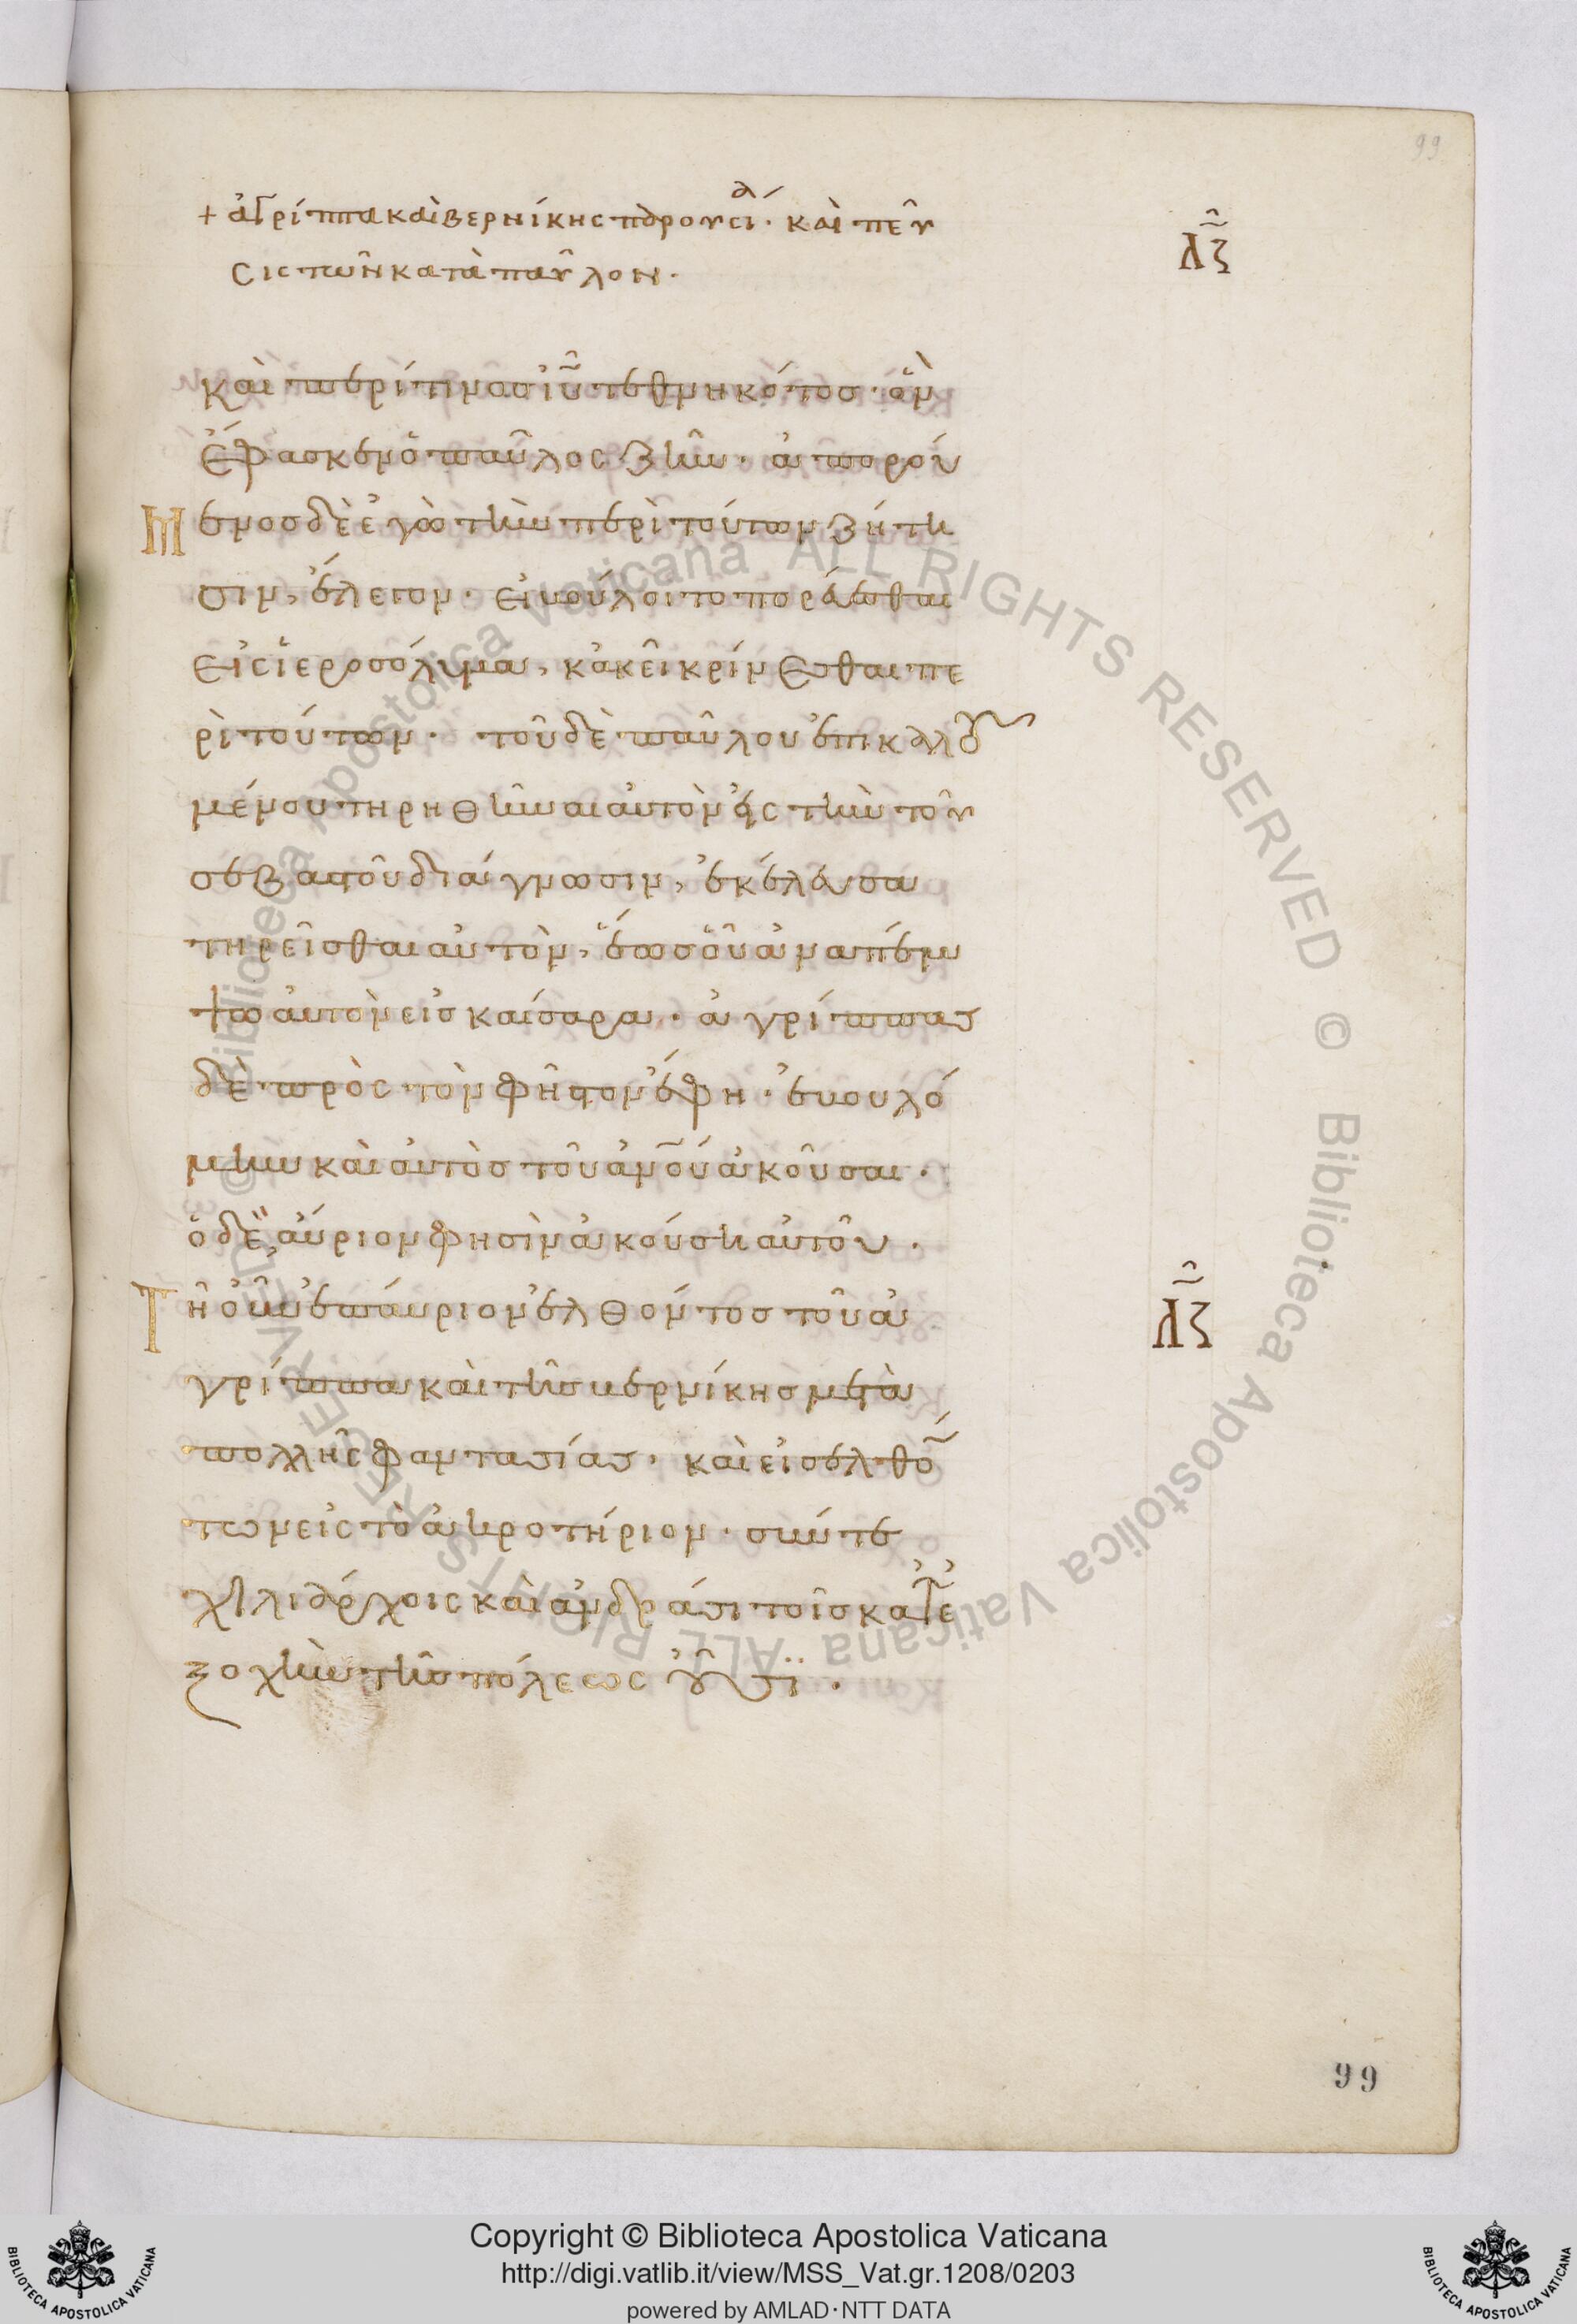 99
+ ἀγρίππα καὶ βερνίκης παρουσία· καὶ πεῦ
σις τῶν κατὰ παῦλον·
λζ
καὶ περί τινος ἰυ τεθνηκότος· ὃν
ἔφασκεν ὁ παῦλος ζῆν· ἀπορού
μενος δὲ ἐγὼ τὴν περὶ τούτων ζήτη
σιν, ἔλεγον· εἰ βούλοιτο πορεύεσθαι
εἰς ἱεροσόλυμα, κἀκεῖ κρίνεσθαι πε
ρὶ τούτων· τοῦ δὲ παύλου ἐπικαλου
μένου τηρηθῆναι αὐτὸν εἰς τὴν τοῦ
σεβαστοῦ διάγνωσιν, ἐκέλευσα
τηρεῖσθαι αὐτὸν, ἕως οὗ ἀναπέμ
ψω αὐτὸν εἰς καίσαρα· ἀγρίππας
δὲ πρὸς τὸν φῆστον ἔφη· ἐβουλό
μην καὶ αὐτὸς τοῦ ἀνου ἀκοῦσαι·
ὁ δὲ, αὔριον φησὶν ἀκούση αὐτοῦ·
Τῆ οὖν ἐπαύριον ἐλθόντος τοῦ ἀ
γρίππα καὶ τῆς βερνίκης μετὰ
λζ
πολλῆς φαντασίας· καὶ εἰσελθό
των εἰς τὸ ἀκροτήριον· σύν τε
χιλιάρχοις καὶ ἀνδράσι τοῖς κατ' ἐ
ξοχὴν τῆς πόλεως οὖσι·
99
Copyright © Biblioteca Apostolica Vaticana
http://digi.vatlib.it/view/MSS_Vat.gr.1208/0203
powered by AMLAD·NTT DATA
BIBLIOTECA APOSTOLICA VATICANA
BIBLIOTECA APOSTOLICA VATICANA
© Biblioteca Apostolica Vaticana ALL RIGHTS RESERVED © Biblioteca Apostolica Vaticana ALL RIGHTS RESERVED